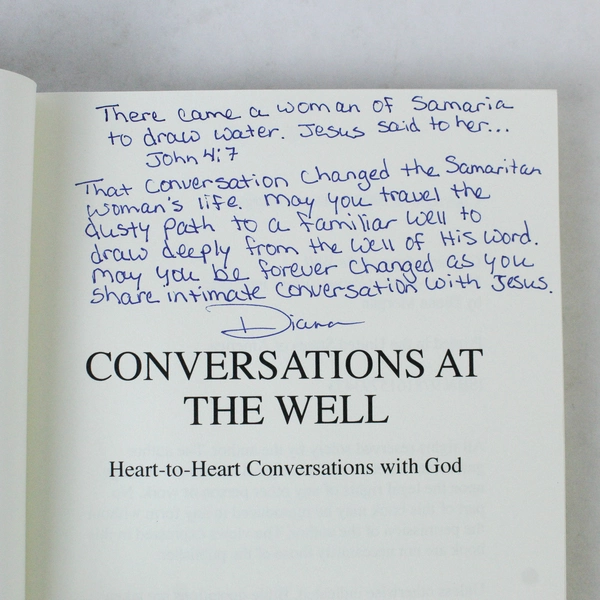 There came a woman of Samaria
to draw water. Jesus said to her...
John 4:7
That conversation changed the Samaritan
woman's life. May you travel the
dusty path to a familiar well to
draw deeply from the well of His word.
May you be forever changed as you
share intimate conversation with Jesus.
Diana
CONVERSATIONS AT
THE WELL
Heart-to-Heart Conversations with God